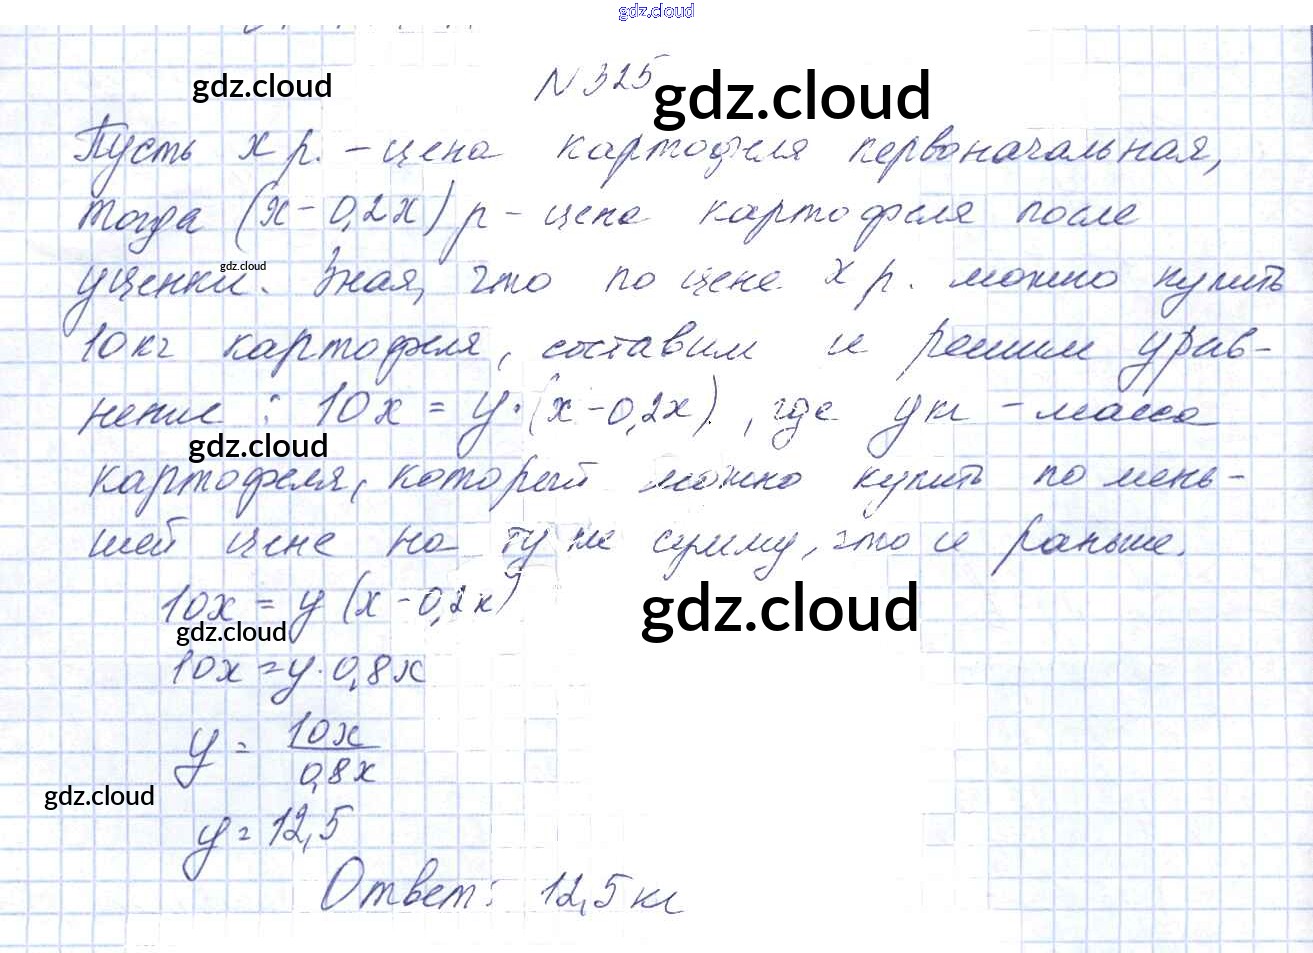 gdz.cloud
N 325
gdz.cloud gdz.cloud
Пусть x р. – цена картофеля первоначальная,
тогда (x – 0,2x) р – цена картофеля после
уценки. Зная, что по цене x р. можно купить
gdz.cloud
10 кг картофеля, составим и решим урав-
нение : 10x = y · (x – 0,2x), где y кг – масса
gdz.cloud
картофеля, который можно купить по мень-
шей цене на ту же сумму, что и раньше.
10x = y (x – 0,2x)
gdz.cloud gdz.cloud
10x = y · 0,8x
y = 10x / 0,8x
gdz.cloud
y = 12,5
Ответ: 12,5 кг